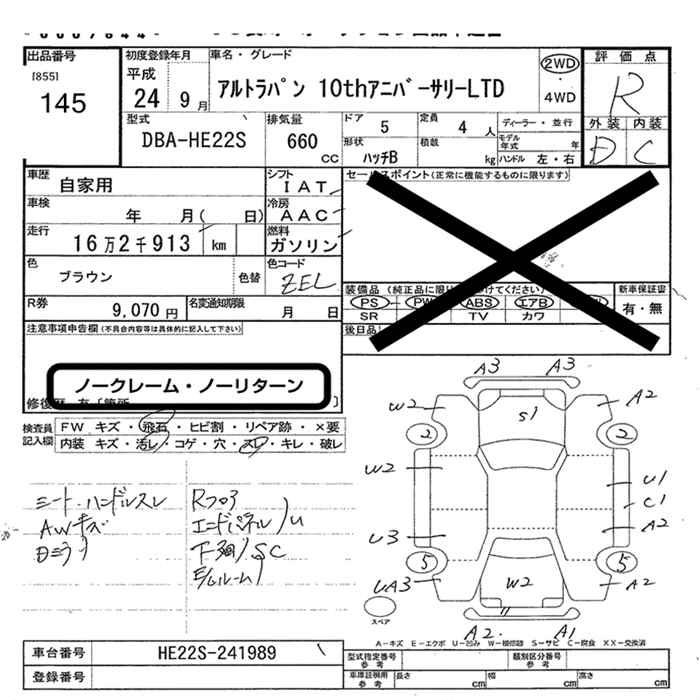 出品番号
[855]
145
初度登録年月
平成
24 9月
車名・グレード
アルトラパン 10thアニバーサリーLTD
2WD
4WD
評価点
R
外装 内装
D C
型式
DBA-HE22S
排気量
660
CC
ドア
5
定員
4 人
ディーラー・並行
形状
ハッチB
積載
kg
モデル年式 年
ハンドル 左・右
車歴
自家用
シフト
IAT
車検
年 月( 日)
冷房
AAC
走行
16万2千913 km
燃料
ガソリン
色
ブラウン
色替
色コード
ZEL
R券
9,070 円
名変通知期限
月 日
セールスポイント(正常に機能するものに限ります)
PS PW ABS エアB
SR TV カワ
新車保証書
有・無
後日品
注意事項申告欄 (不具合内容等は具体的に記入して下さい)
ノークレーム・ノーリターン
検査員記入欄
FW キズ・飛石・ヒビ割・リペア跡・×要
内装 キズ・汚レ・コゲ・穴・スレ・キレ・破レ
シート・ハンドルスレ
AWキズ
Rフロア
エンドパネル U
下廻 SC
A3 A3
W2 S1 A2
2 2
W2 U1
C1
U3 A2
5 5
UA3 W2 A2
A2 A1
スペア
A-キズ E-エクボ U-凹み W-補修跡 S-サビ C-腐食 XX-交換済
車台番号
HE22S-241989
登録番号
型式指定番号
参考
類別区分番号
参考
車庫証明用
参考
長さ cm
幅 cm
高さ cm